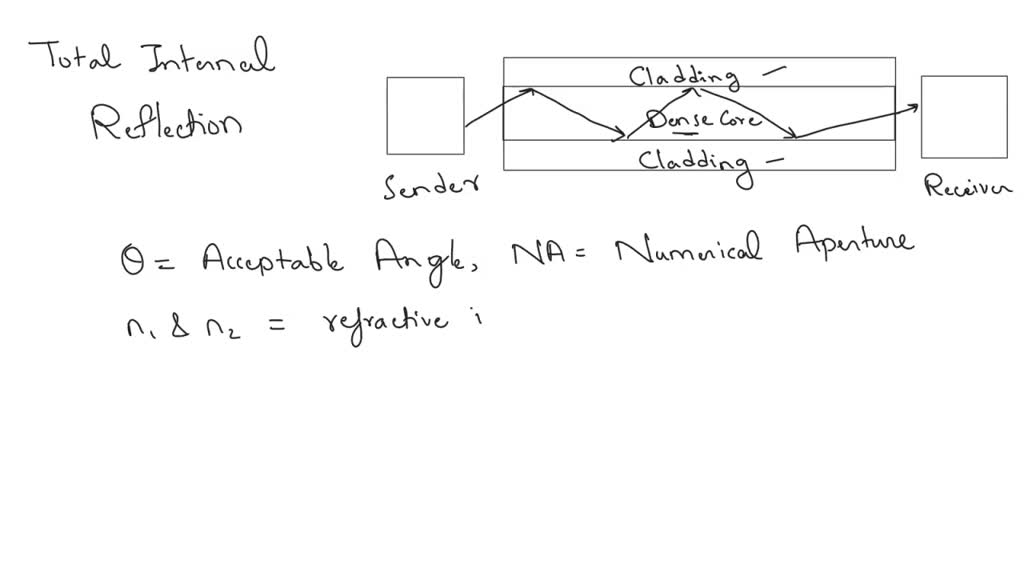 Total Internal
Reflection
Cladding –
Dense Core
Cladding –
Sender
Receiver
θ = Acceptable Angle, NA = Numerical Aperture
n₁ & n₂ = refractive i